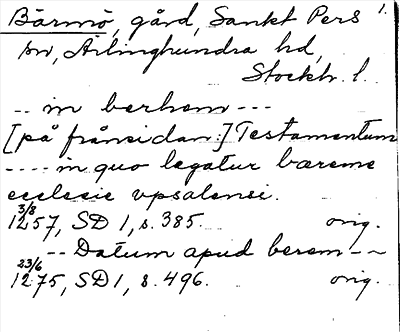 Bärmö, gård, Sankt Pers 1.
sn, Ärlinghundra hd,
Stockh. l.
-- in berhem ---
[på frånsidan:] Testamentum
---- in quo legatur bæreme
ecclesie vpsalensi.
3/8
1257, SD 1, s. 385. orig.
-- Datum apud berem --
23/6
1275, SD 1, s. 496. orig.